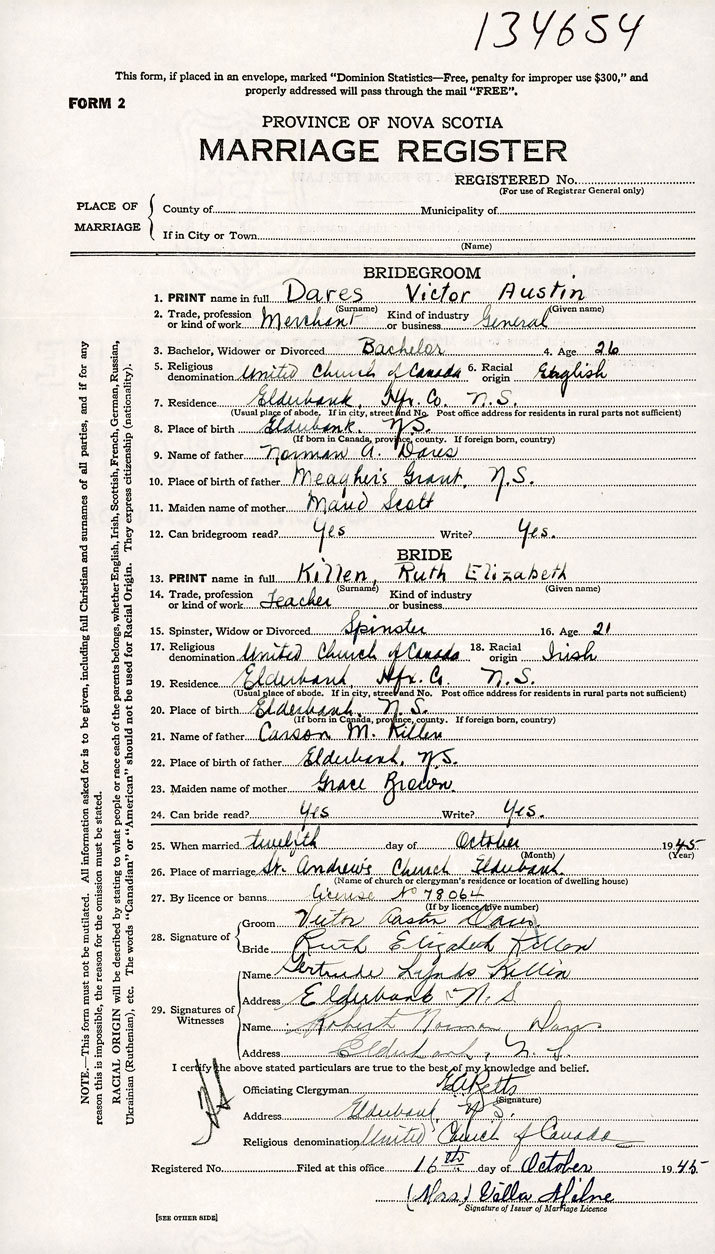 134654
This form, if placed in an envelope, marked "Dominion Statistics—Free, penalty for improper use $300," and
properly addressed will pass through the mail "FREE".
FORM 2
PROVINCE OF NOVA SCOTIA
MARRIAGE REGISTER
REGISTERED No.
(For use of Registrar General only)
PLACE OF MARRIAGE
County of Municipality of
If in City or Town
(Name)
BRIDEGROOM
1. PRINT name in full Dares Victor Austin
(Surname) (Given name)
2. Trade, profession or kind of work Merchant Kind of industry or business General
3. Bachelor, Widower or Divorced Bachelor 4. Age 26
5. Religious denomination United Church of Canada 6. Racial origin English
7. Residence Elderbank, Hfx. Co. N.S.
(Usual place of abode. If in city, street and No. Post office address for residents in rural parts not sufficient)
8. Place of birth Elderbank. N.S.
(If born in Canada, province, county. If foreign born, country)
9. Name of father Norman A. Dares
10. Place of birth of father Meagher's Grant, N.S.
11. Maiden name of mother Maud Scott
12. Can bridegroom read? Yes Write? Yes.
BRIDE
13. PRINT name in full Killen, Ruth Elizabeth
(Surname) (Given name)
14. Trade, profession or kind of work Teacher Kind of industry or business
15. Spinster, Widow or Divorced Spinster 16. Age 21
17. Religious denomination United Church of Canada 18. Racial origin Irish
19. Residence Elderbank, Hfx. Co. N.S.
(Usual place of abode. If in city, street and No. Post office address for residents in rural parts not sufficient)
20. Place of birth Elderbank, N.S.
(If born in Canada, province, county. If foreign born, country)
21. Name of father Carson M. Killen
22. Place of birth of father Elderbank, N.S.
23. Maiden name of mother Grace Brown.
24. Can bride read? Yes Write? Yes.
25. When married twelfth day of October 1945
(Month) (Year)
26. Place of marriage St. Andrew's Church Elderbank.
(Name of church or clergyman's residence or location of dwelling house)
27. By licence or banns License No 78064
(If by licence, give number)
28. Signature of
Groom Victor Austin Dares
Bride Ruth Elizabeth Killen
29. Signatures of Witnesses
Name Gertrude Lynds Killen
Address Elderbank N.S
Name Robert Norman Dares
Address Elderbank, N.S.
I certify the above stated particulars are true to the best of my knowledge and belief.
Officiating Clergyman
(Signature)
Address Elderbank, N.S.
Religious denomination United Church of Canada
Registered No. Filed at this office 16th day of October 1945
(Mrs.) Milne
Signature of Issuer of Marriage Licence
[SEE OTHER SIDE]
NOTE.—This form must not be mutilated. All information asked for is to be given, including full Christian and surnames of all parties, and if for any
reason this is impossible, the reason for the omission must be stated.
RACIAL ORIGIN will be described by stating to what people or race each of the parents belongs, whether English, Irish, Scottish, French, German, Russian,
Ukrainian (Ruthenian), etc. The words "Canadian" or "American" should not be used for Racial Origin. They express citizenship (nationality).